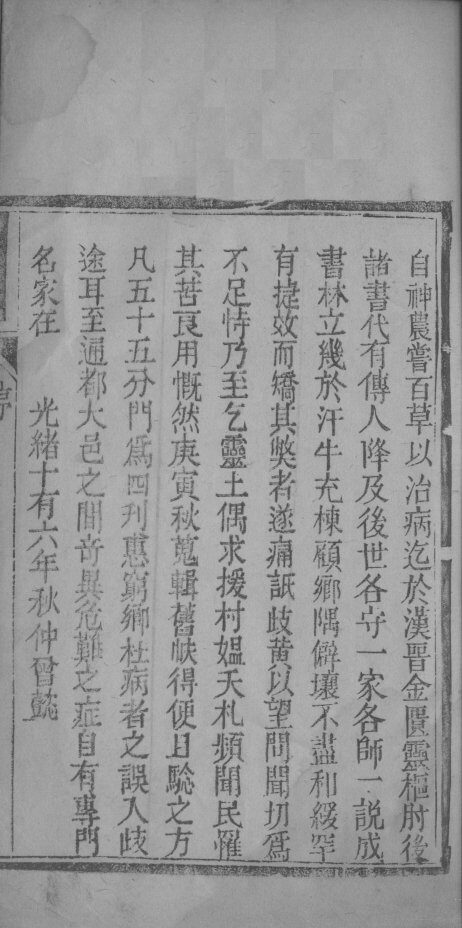 自神農嘗百草以治病迄於漢晋金匱靈樞肘後
諸書代有傳人降及後世各守一家各師一說成
書林立幾於汗牛充棟顧鄉隅僻壤不盡和緩罕
有捷效而矯其獘者遂痛詆歧黄以望問聞切爲
不足恃乃至乞靈土偶求援村媼夭札頻聞民罹
其苦良用慨然庚寅秋蒐輯舊帙得便且驗之方
凡五十五分門爲四刊惠窮鄉杜病者之誤入歧
途耳至通都大邑之間竒異危難之症自有專門
名家在　光緒十有六年秋仲曾懿